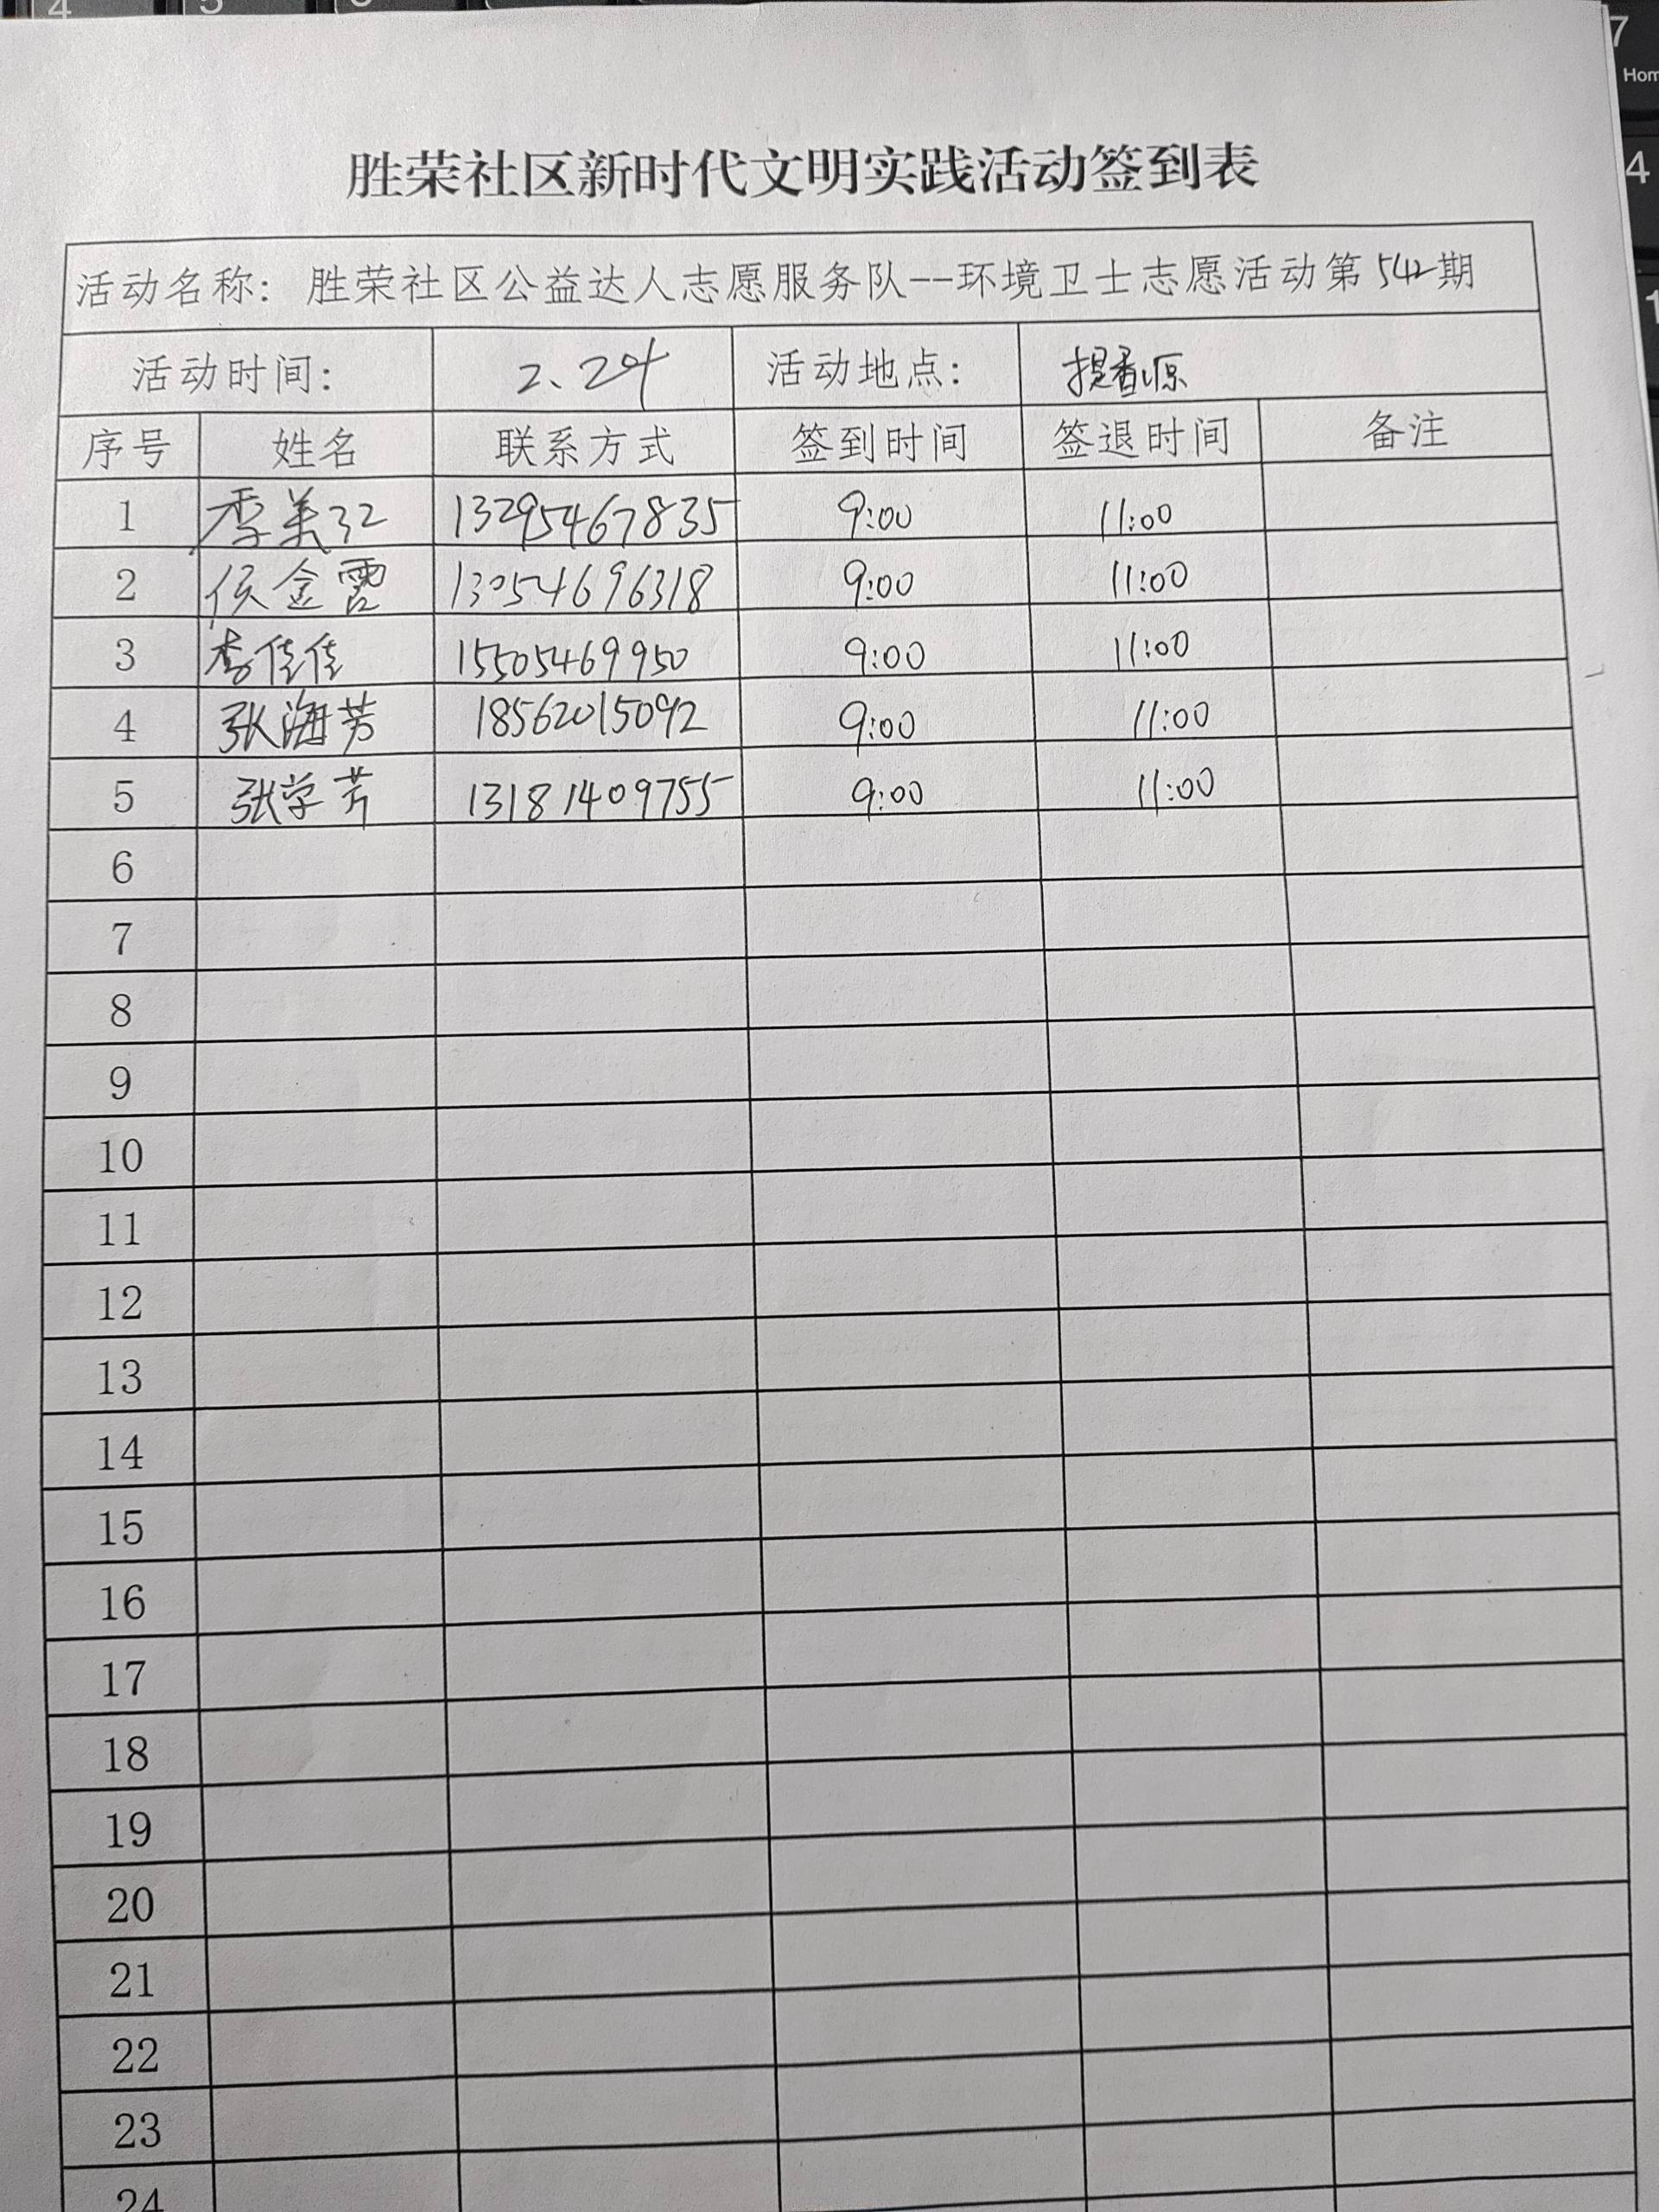 胜荣社区新时代文明实践活动签到表
活动名称：胜荣社区公益达人志愿服务队--环境卫士志愿活动第542期
活动时间： 2、24 活动地点： 提香源
序号 姓名 联系方式 签到时间 签退时间 备注
1 季美玲 13295467835 9:00 11:00
2 侯金霞 13054696318 9:00 11:00
3 李佳佳 15505469950 9:00 11:00
4 张海芳 18562015092 9:00 11:00
5 张学芳 13181409755 9:00 11:00
6
7
8
9
10
11
12
13
14
15
16
17
18
19
20
21
22
23
24
4 5 6
7
Hom
4
1